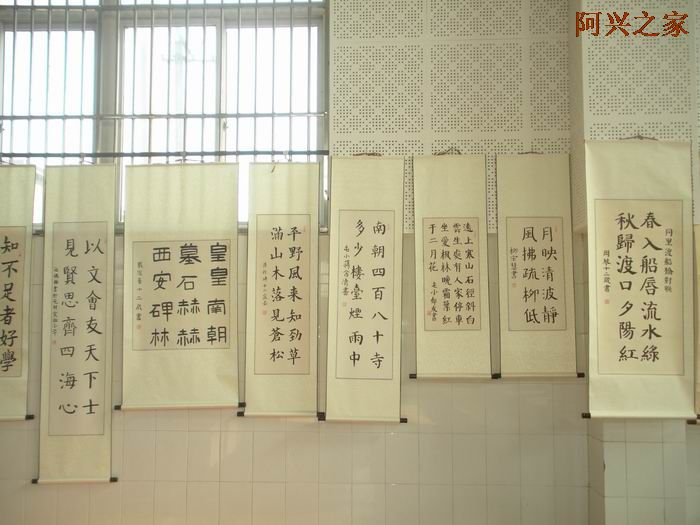 阿兴之家
春入船唇流水綠
秋歸渡口夕陽紅
月映清波靜
風拂疏柳低
遠上寒山石徑斜白
雲生處有人家停車
坐愛楓林晚霜葉紅
于二月花
南朝四百八十寺
多少樓臺煙雨中
平野風来知勁草
滿山木落見蒼松
皇皇南朝
墓石赫赫
西安碑林
以文會友天下士
見賢思齊四海心
知不足者好學